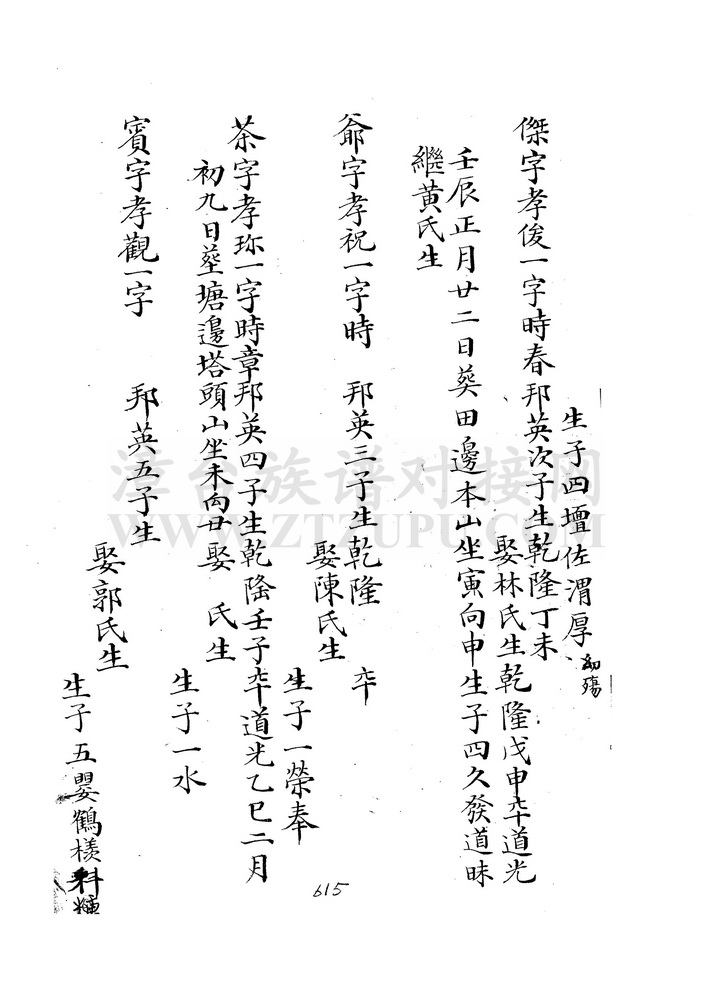 生子四壇佐渭厚 幼殤
傑字孝俊一字時春邦英次子生乾隆丁未
娶林氏生乾隆戊申卒道光
壬辰正月廿二日葬田邊本山坐寅向申生子四久發道昧
繼黃氏生
爺字孝祝一字時 邦英三子生乾隆 卒
娶陳氏生
生子一榮奉
茶字孝珎一字時章邦英四子生乾隆壬子卒道光乙巳二月
初九日塟塘邊塔頭山坐未向丑娶 氏生
生子一水
賓字孝觀一字 邦英五子生
娶郭氏生
生子五嬰鶴樣科
615
漳台族谱对接网
WWW.ZTZUPU.COM